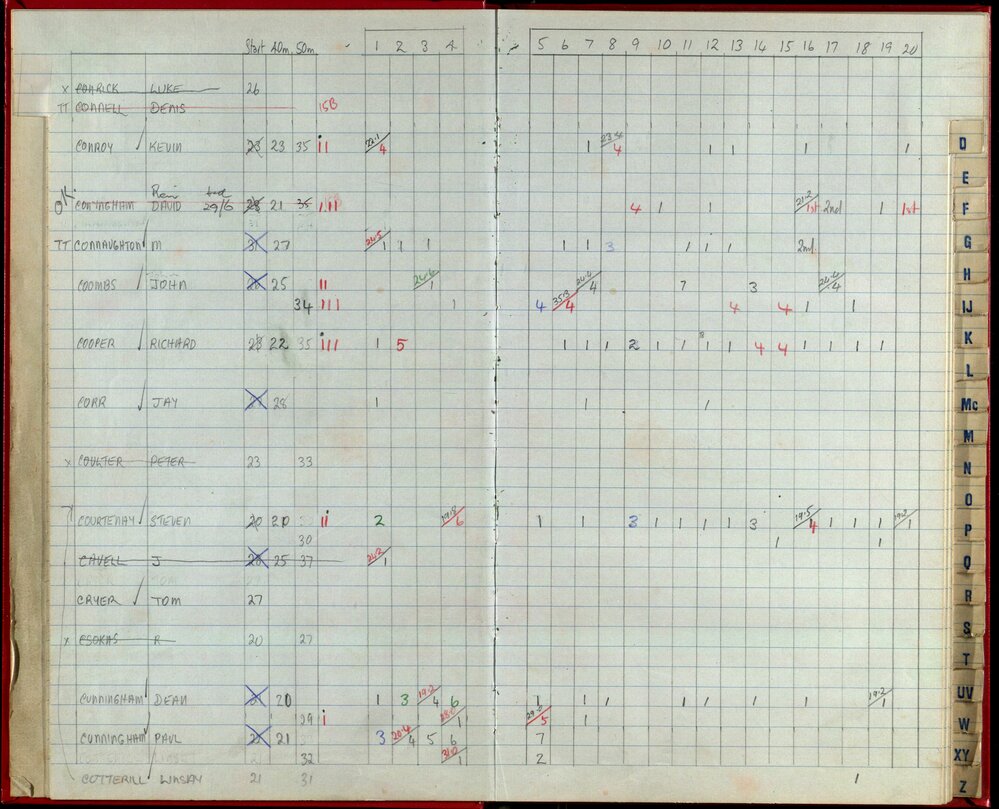 Start 40m. 50m. 1 2 3 4 5 6 7 8 9 10 11 12 13 14 15 16 17 18 19 20
x CONRICK LUKE 26
TT CONNELL DENIS 15B
CONROY KEVIN 23 35 ii 22.1 4 1 23.4 4 1 1 1 1
Rein
OK CONINGHAM DAVID 29/6 21 35 4 1 1 21.2 1st 2nd 1 1st
TT CONNAUGHTON M 27 24.5 1 1 1 1 1 3 1 1 1 2nd
COOMBS JOHN 25 II 24.6 1 4 7 3 4
34 III 1 4 35.3 4 4 4 1 1
COOPER RICHARD 23 22 35 iii 1 5 1 1 1 2 1 1 1 1 4 4 1 1 1 1
CORR JAY 28 1 1 1
x COULTER PETER 23 33
COURTENAY STEVEN 20 20 ii 2 6 1 1 3 1 1 1 1 3 19.5 4 1 1 1 1
30 1 1
CAVELL J 25 37 24.2 1
TOM
CRYER TOM 27
x CSOKAS R 20 27
CUNNINGHAM DEAN 20 1 3 19.2 4 6 1 1 1 1 1 1 1 19.2 1
29 i 1 5 1
CUNNINGHAM PAUL 21 3 20.4 4 5 6 7
32 31.0 1 2
COTTERILL LINSAY 21 31 1
D
E
F
G
H
IJ
K
L
Mc
M
N
O
P
Q
R
S
T
UV
W
XY
Z